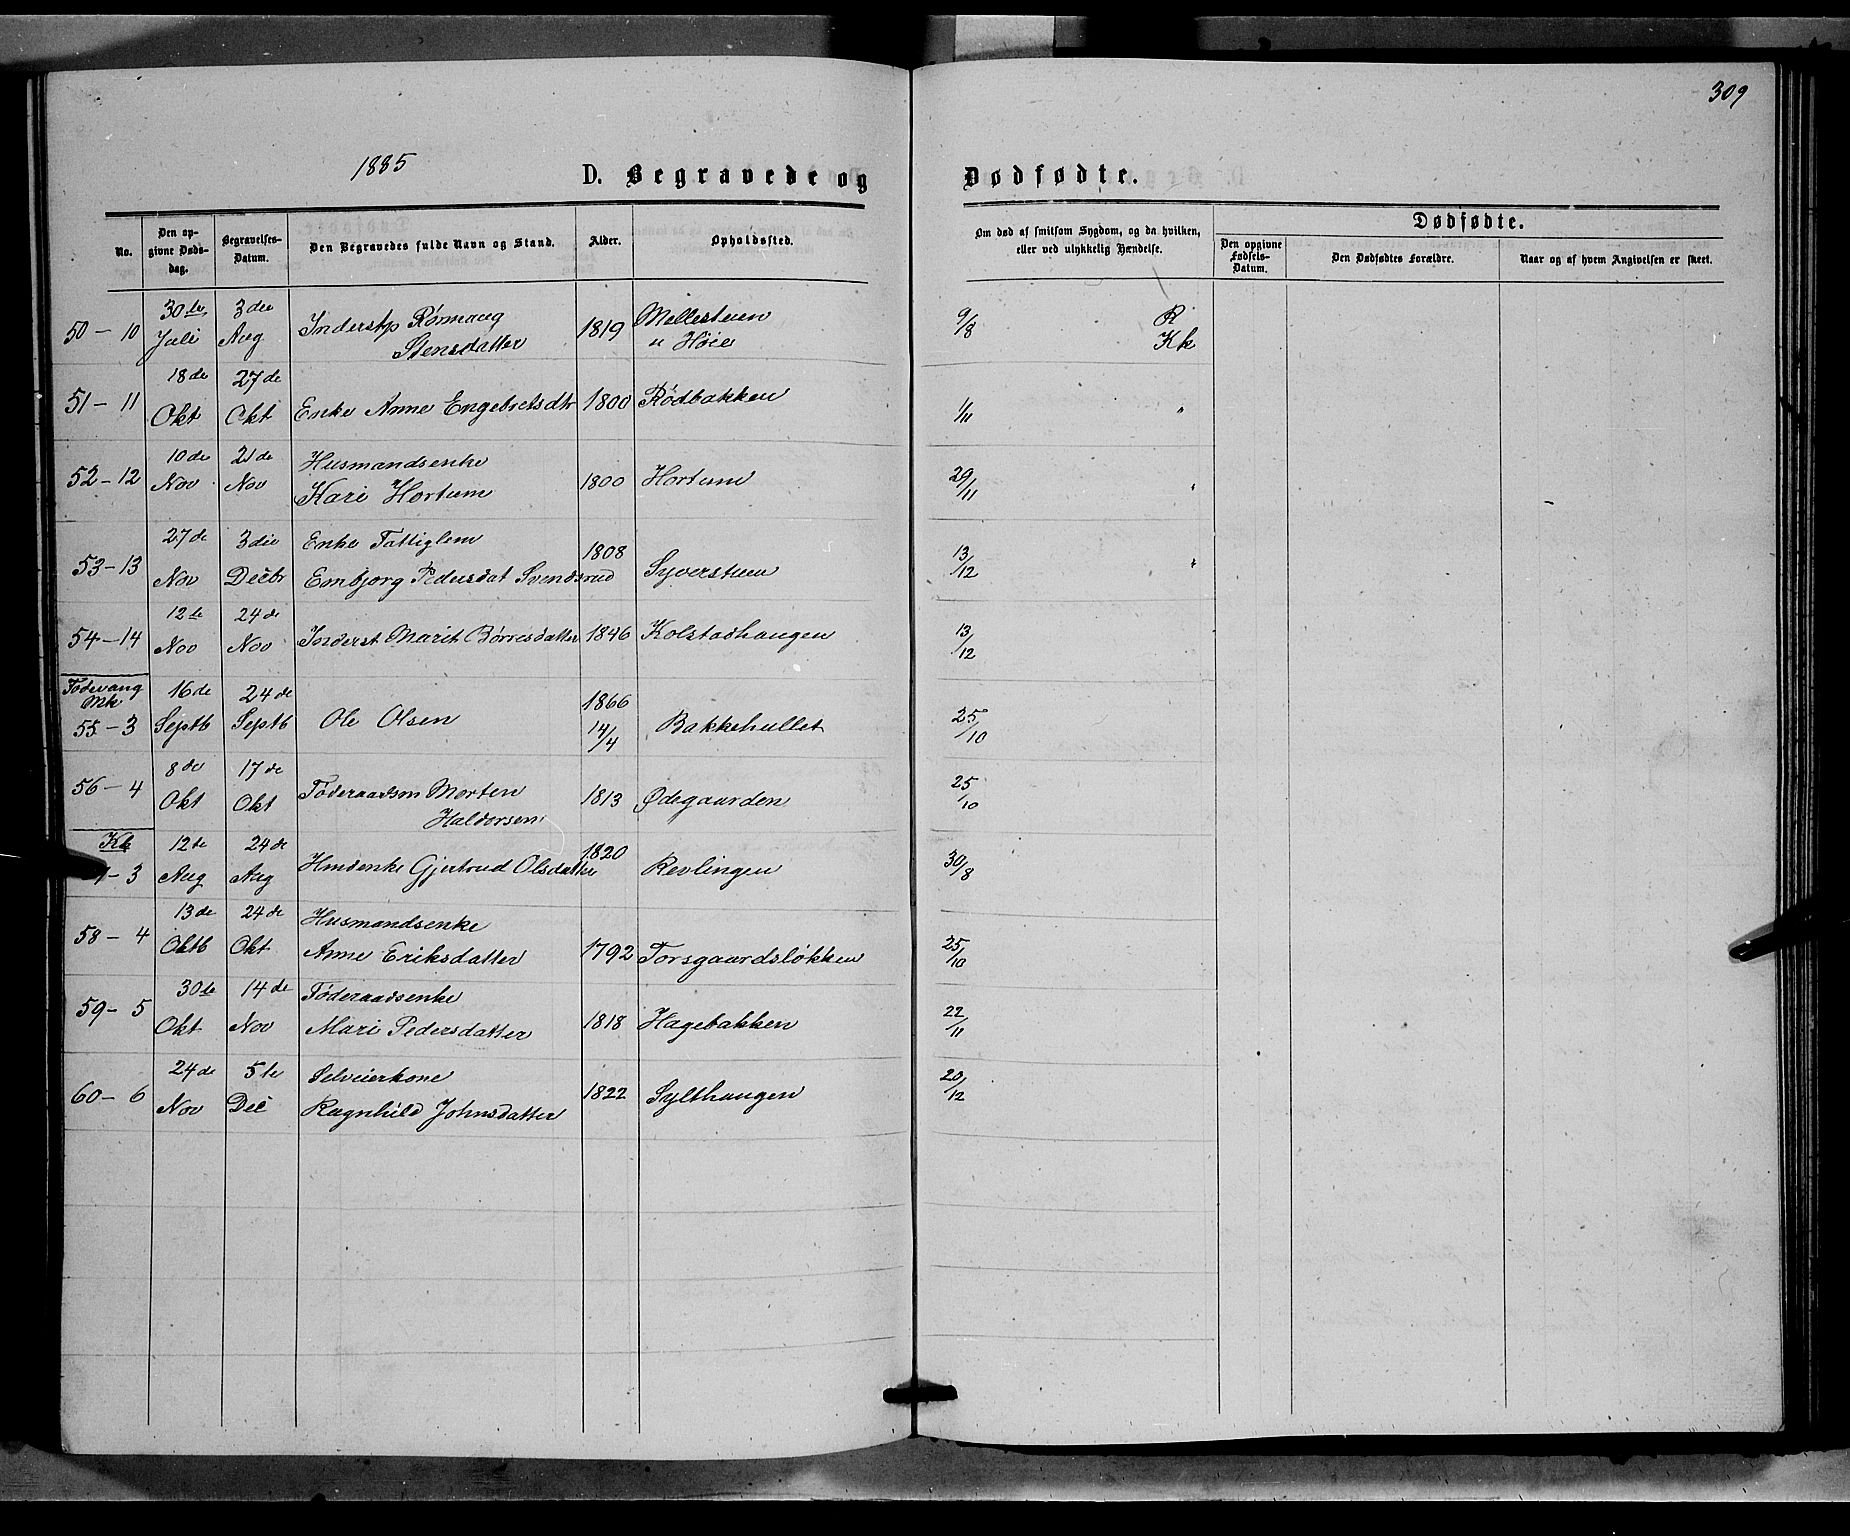 309
1885
D. Begravede og Dødfødte.
No.
Den opgivne Dødsdag.
Begravelses-Datum.
Den Begravedes fulde Navn og Stand.
Alder.
Opholdssted.
Om død af smitsom Sygdom, og da hvilken, eller ved ulykkelig Hændelse.
Dødfødte.
Den opgivne Fødsels-Datum.
Den Dødfødtes Forældre.
Naar og af hvem Angivelsen er skeet.
50 - 10 30te Juli 3die Aug Inderstp Rønnaug Stensdatter 1819 Mellestuen u Høie 9/8 R Kk
51 - 11 18de Okt 27de Okt Enke Anne Engebretsdtr 1800 Rødbakken 1/11 "
52 - 12 10de Nov 21de Nov Husmandsenke Kari Hortum 1800 Hortum 29/11 "
53 - 13 27de Nov 3die Decbr Enke Fattiglem Embjørg Pedersdat Svendsrud 1808 Syverstuen 13/12 "
54 - 14 12te Nov 24de Nov Inderst Marit Børresdatter 1846 Kolstadhaugen 13/12
Fødevang Mk
55 - 3 16de Septb 24de Septb Ole Olsen 1866 14/4 Bakkehullet 25/10
56 - 4 8de Okt 17de Okt Føderaadsm Morten Haldorsen 1813 Ødegaarden 25/10
Kk
- 3 12te Aug 24de Aug Hmdenke Gjertrud Olsdatter 1820 Revlingen 30/8
58 - 4 13de Oktb 24de Okt Husmandsenke Anne Eriksdatter 1792 Torsgaardsløkken 25/10
59 - 5 30te Okt 14de Nov Føderaadsenke Mari Pedersdatter 1818 Hagebakken 22/11
60 - 6 24de Nov 5te Dec Selveierkone Ragnhild Johnsdatter 1822 Sylthaugen 20/12